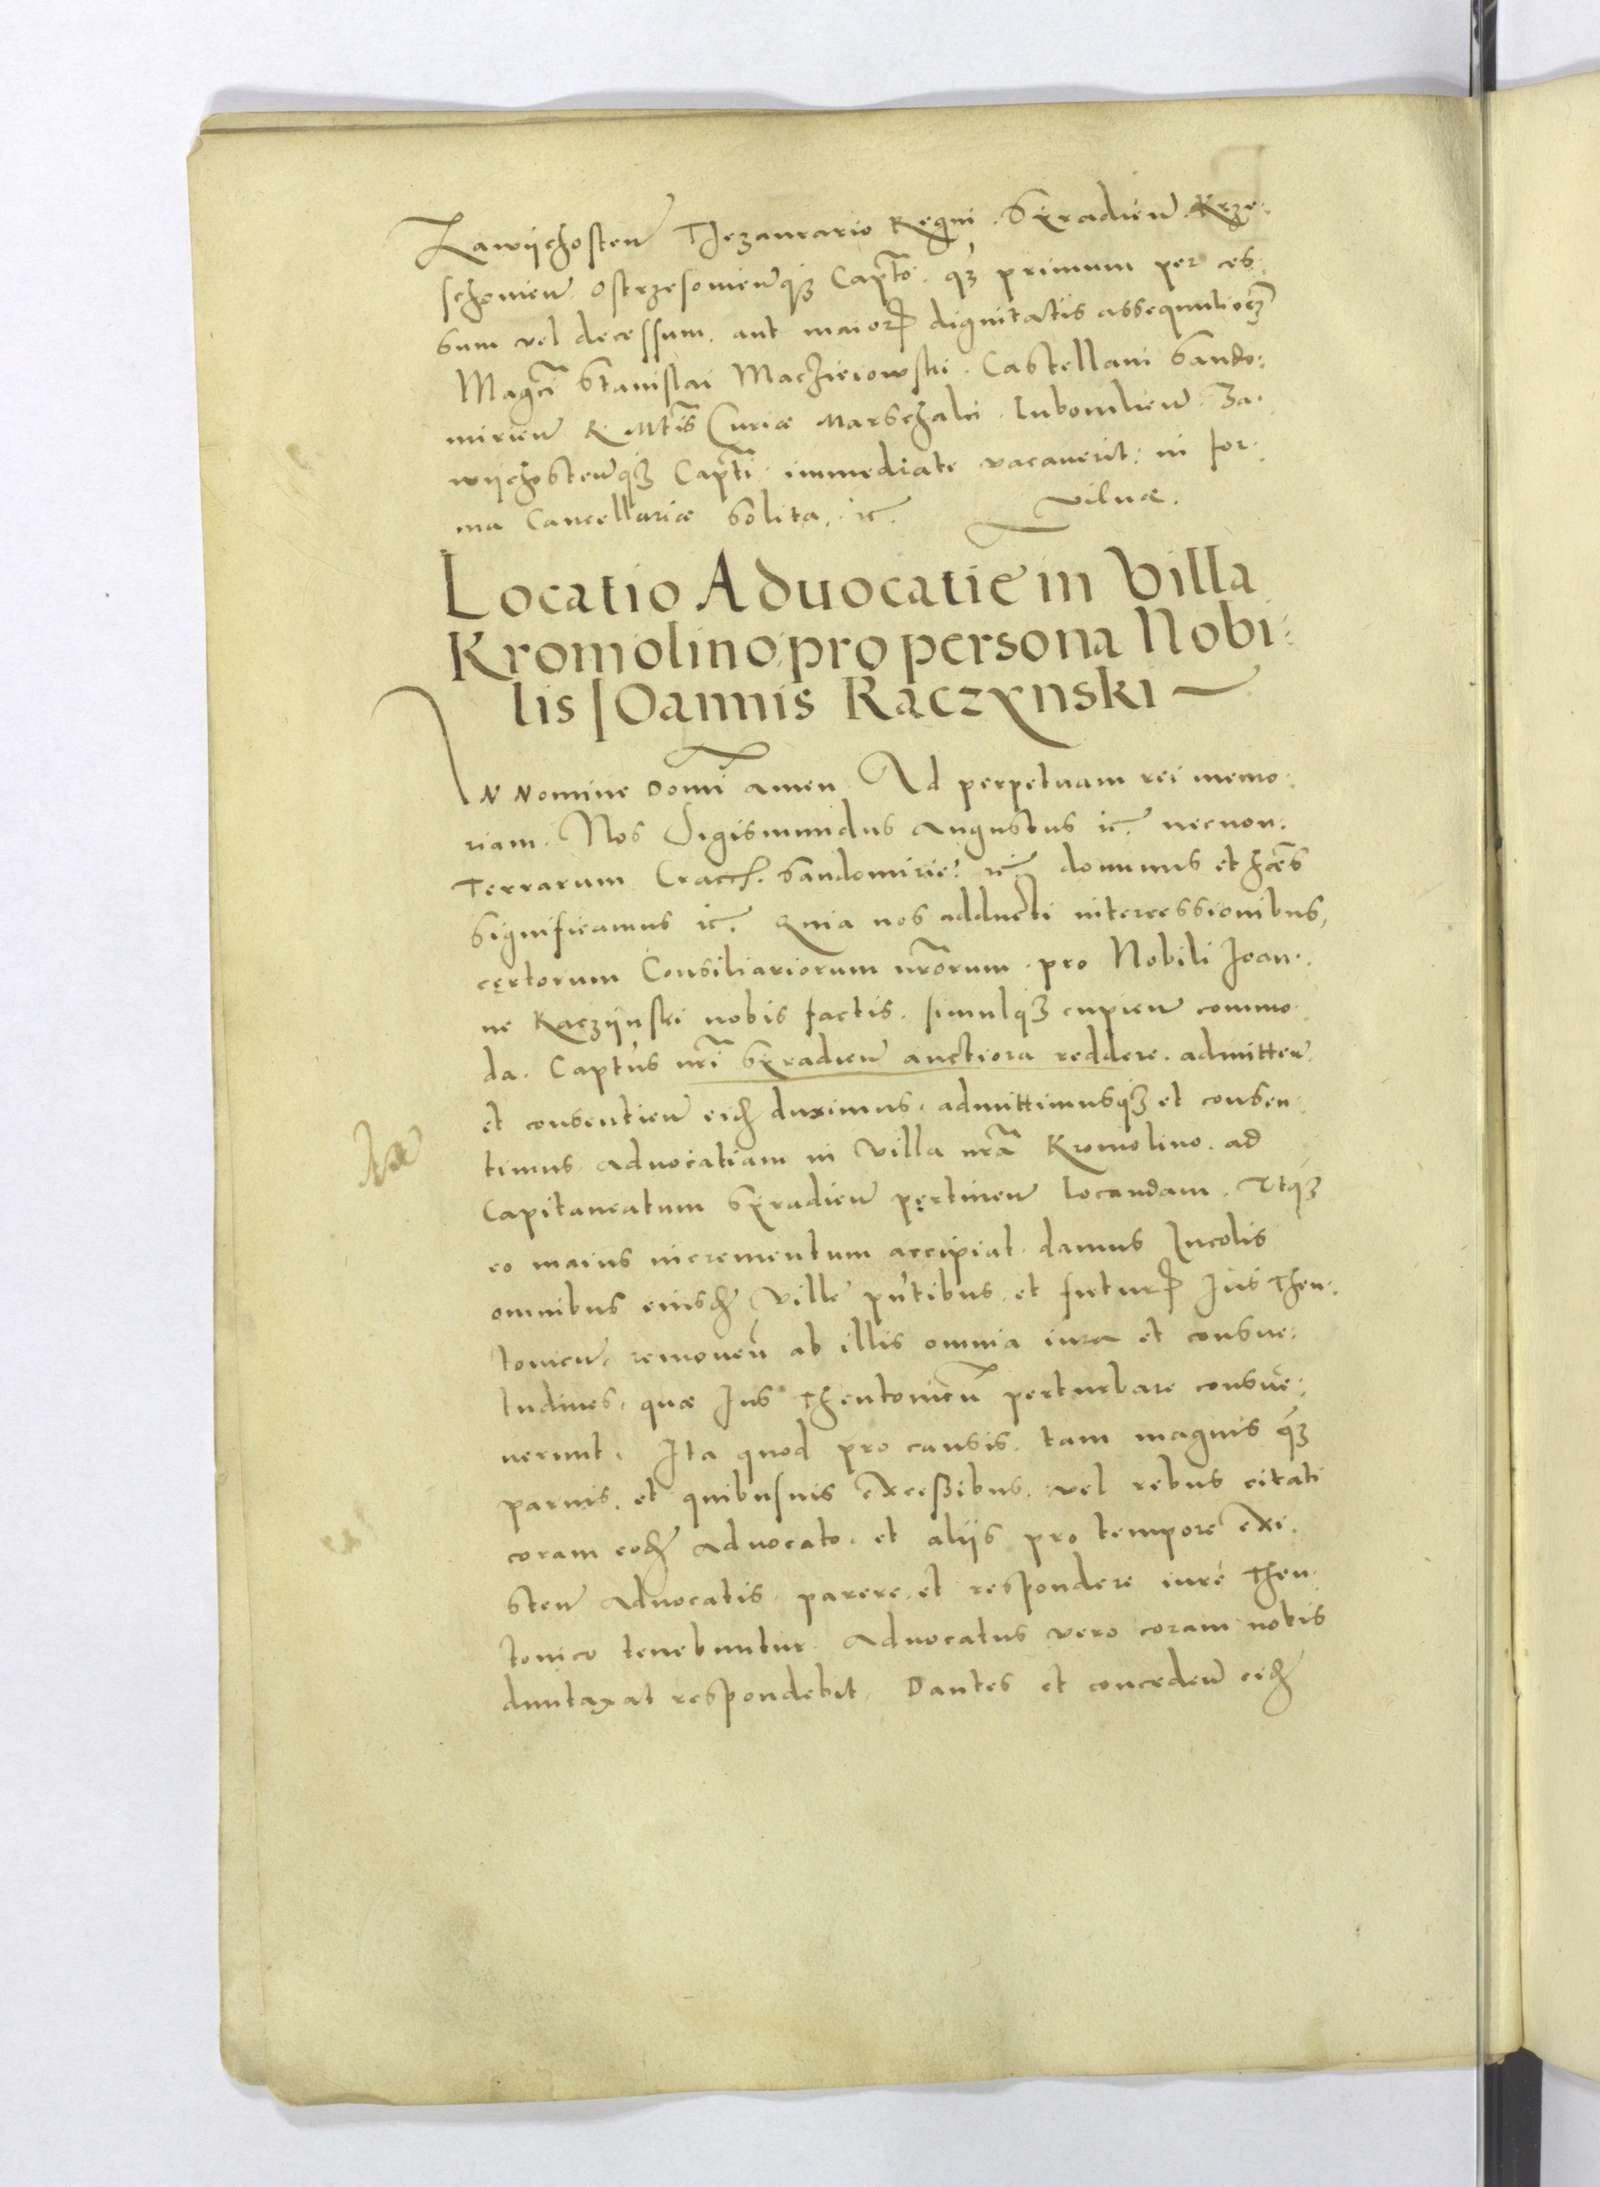 Zawijchosten Thezaurario Regni. Syradien. Krze:
schouien Ostrzesouienq₃ Capto. q₃ primum per ces:
sum vel decessum. aut maior dignitatis assequutioē
Magci Stanislai Maczieiowski. Castellani Sando:
mirien R. Mtis Curiæ Marschalci. Lubomlien. Za:
wijchostenq₃ Capti. immediate vacauerit. in for:
ma Cancellariæ Solita. ꝛc. Vilnæ.
Locatio Aduocatie in Villa
Kromolino pro persona Nobi:
lis IOannis Raczynski
IN Nomine Domi Amen Ad perpetuam rei memo:
riam. Nos Sigismundus Augustus ꝛc. necnon.
Terrarum Cracō. Sandomirie. ꝛc. dominus et hæs
Significamus ꝛc. Quia nos adducti intercessionibus,
certorum Consiliariorum nrorum. pro Nobili Joan:
ne Raczijnski nobis factis. simulq₃ cupien commo:
da. Captus nri Syradien auctiora reddere. admitten.
et consentien eid duximus. admittimusq₃ et consen:
timus. Aduocatiam in Villa nra Kromolino. ad
Capitaneatum Syradien pertinen Locandam. Vtq₃
eo maius incrementum accipiat. damus Incolis
omnibus eiusd Ville pntibus. et futur Jus Theu:
tonicu. remouen ab illis omnia iura et consue:
tudines. quæ Jus Theutonicu perturbare consue:
uerunt. Ita quod pro causis. tam magnis q₃
paruis. et quibusuis excessibus. vel rebus citati
coram eod Aduocato. et alijs pro tempore exi:
sten Aduocatis. parere. et respondere iure Theu:
tonico tenebuntur. Aduocatus vero coram nobis
duntaxat respondebit. Dantes et conceden eid